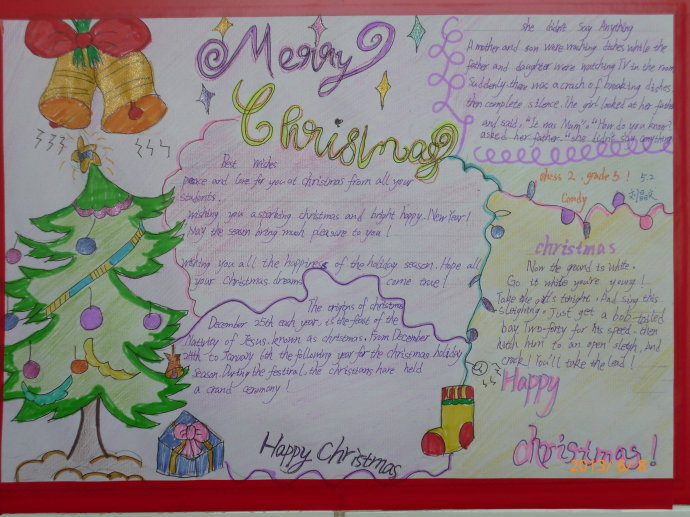 Merry
Christmas
she didn't Say Anything
A mother and son were washing dishes while the
father and daughter were watching TV in the room
Suddenly there was a crash of breaking dishes.
then complete silence. The girl looked at her father
and said, "It was Mum". "How do you know?"
asked her father. "she didn't say anything
class 2, grade 5! 5.2
Candy
Best Wishes
peace and love for you at christmas from all your
students.
wishing you a sparking christmas and bright happy New Year!
May the season bring much pleasure to you!
wishing you all the happiness of the holiday season. Hope all
your Christmas dreams come true!
The origins of christmas
December 25th each year, is the feast of the
Nativity of Jesus, known as christmas. From December
24th to January 6th the following year for the christmas holiday
season. During the festival, the christians have held
a grand ceremony!
Happy Christmas
christmas
Now the ground is white.
Go it while you're young!
Take the girls tonight. And sing this
sleighing. Just get a bob-tailed
bay Two-forty for his speed. then
hitch him to an open sleigh, and
crack! You'll take the lead!
Happy
christmas!